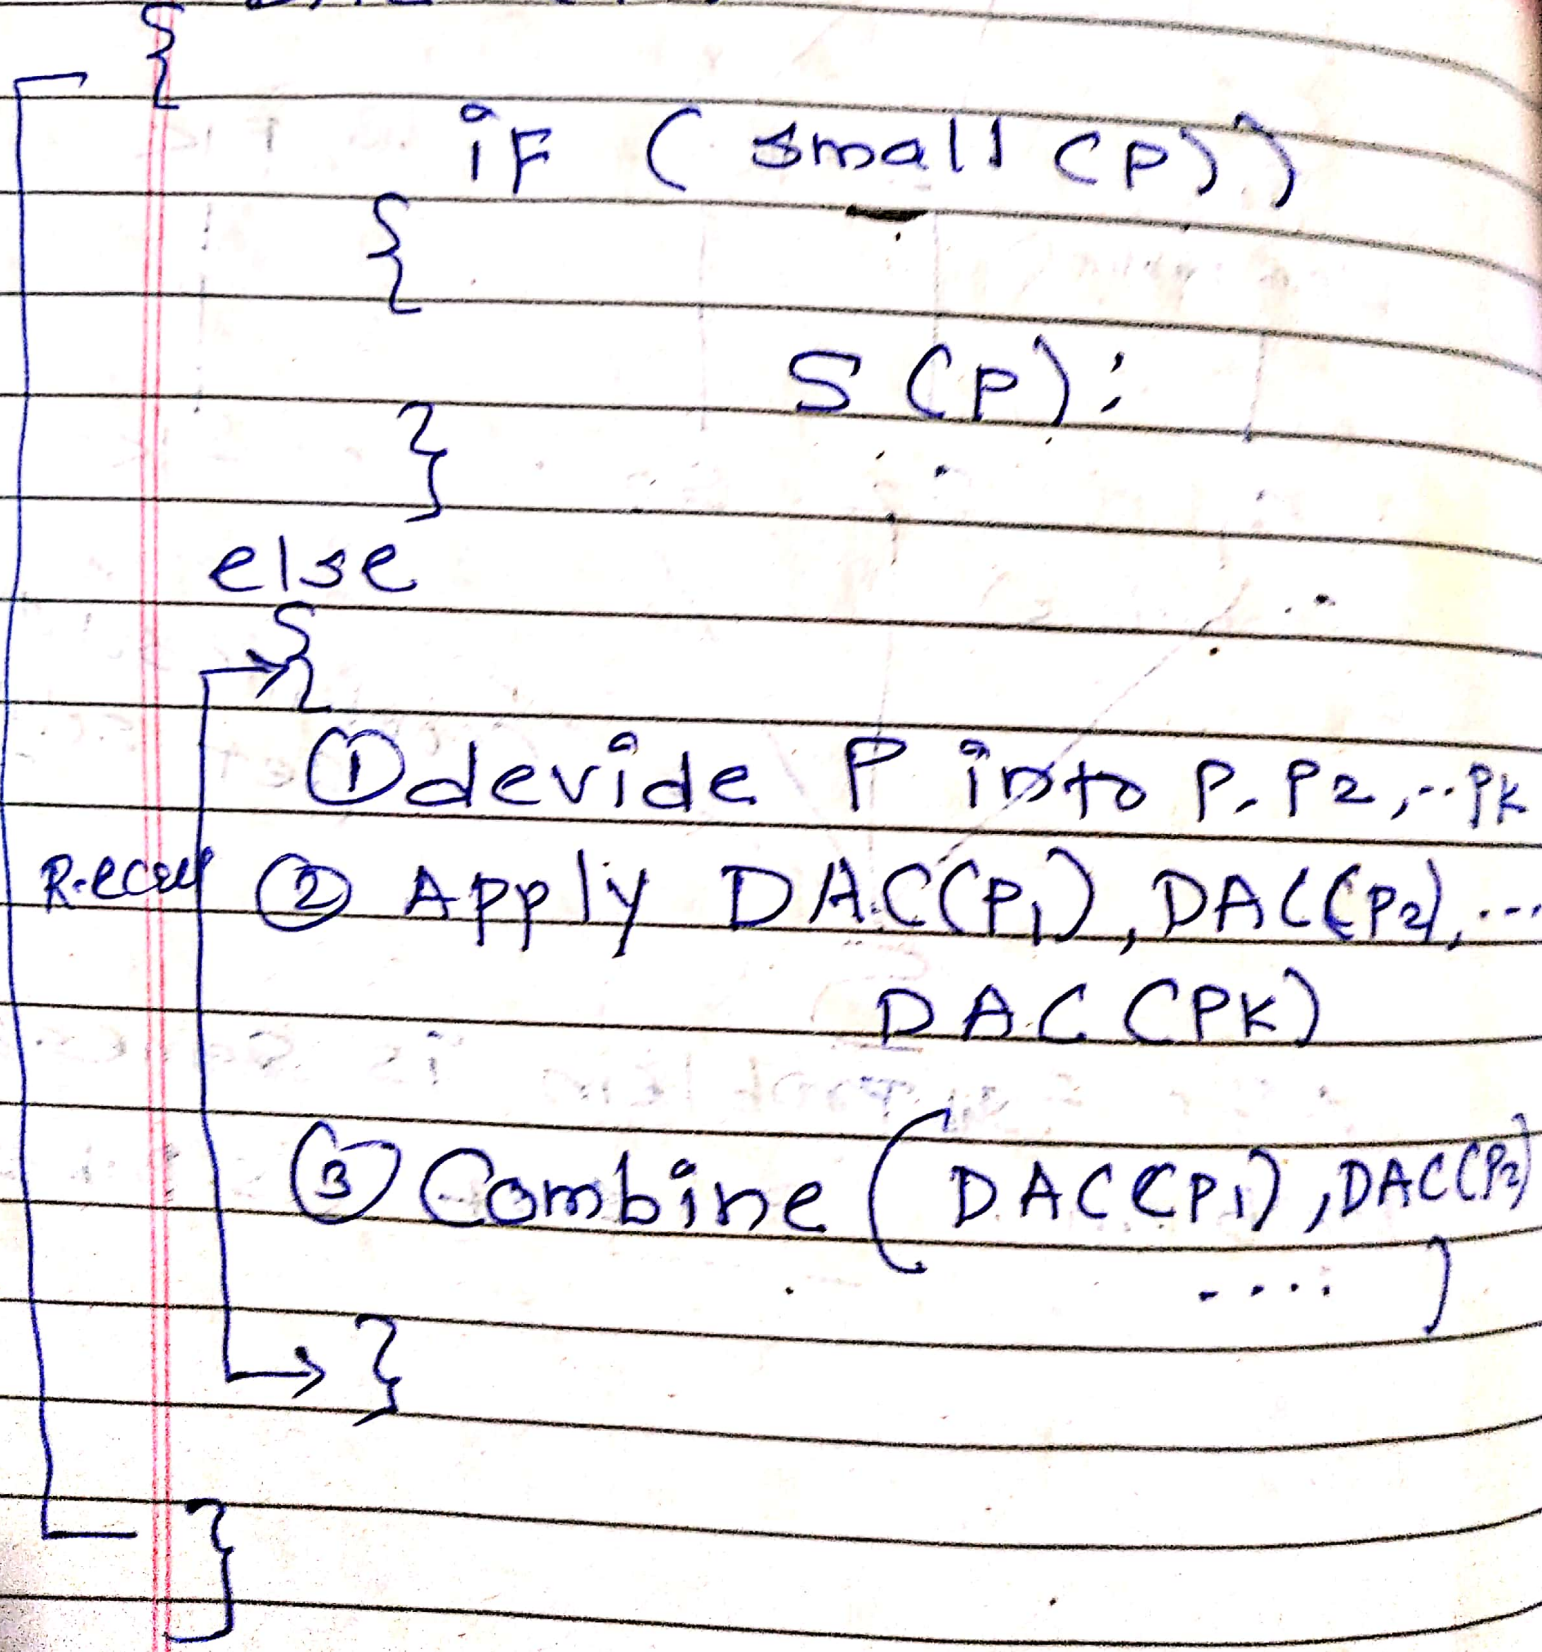 {
if ( small (P))
{
S (P);
}
else
{
① devide P into P. P2, .. Pk
② Apply DAC(P1), DAC(P2), ...
DAC (PK)
③ Combine ( DAC(P1), DAC(P2)
.... )
}
}